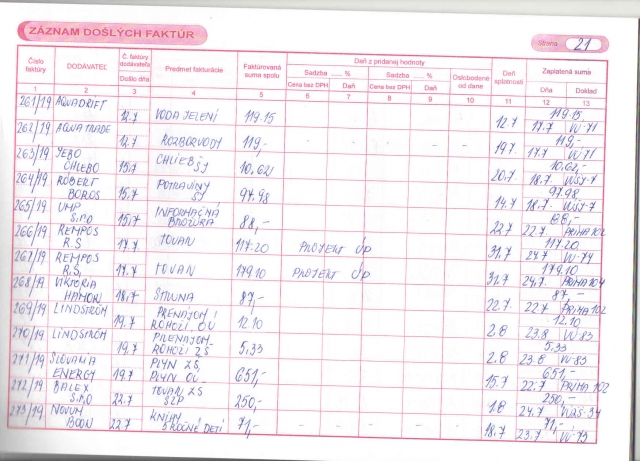 ZÁZNAM DOŠLÝCH FAKTÚR
Strana 21
Číslo faktúry DODÁVATEĽ Č. faktúry dodávateľa Došlo dňa Predmet fakturácie Fakturovaná suma spolu Daň z pridanej hodnoty Sadzba ...... % Cena bez DPH Daň Sadzba ...... % Cena bez DPH Daň Oslobodené od dane Deň splatnosti Zaplatená suma Dňa Doklad
1 2 3 4 5 6 7 8 9 10 11 12 13
261/19 AQUADRIFT 12.7 VODA JELENÍ 119.15 12.7 119.15
17.7 VÚ-71
262/19 AQUA TRADE 12.7 ROZBOR VODY 119,- - - - - - 19.7 119,-
17.7 VÚ-71
263/19 JEBO CHLEBO 15.7 CHLIEB ŠJ 10,62 20.7 10,62,-
18.7 VÚŠJ-7
264/19 RÓBERT BOROS 15.7 POTRAVINY ŠJ 97.98 14.7 97.98
18.7 VÚŠJ-7
265/19 VMP S.R.O 15.7 INFORMAČNÁ BROŽÚRA 88,- 22.7 88,-
22.7 PRIMA 102
266/19 REMPOS R.S 17.7 TOVAR 117.20 PROJEKT ÚP 31.7 117.20
24.7 VÚ-74
267/19 REMPOS R.S. 17.7 TOVAR 179.10 PROJEKT ÚP 31.7 179.10
24.7 PRIMA 104
268/19 VIKTORIA 18.7 87,- 22.7 87,-
22.7 PRIMA 102
269/19 LINDSTRÖM 19.7 PRENÁJOM ROHOŽÍ OÚ 12.10 2.8 12.10
23.8 VÚ-83
270/19 LINDSTRÖM 19.7 PRENÁJOM ROHOŽÍ ZŠ 5,33 2.8 5.33
23.8 VÚ-83
271/19 SLOVAKIA ENERGY 19.7 PLYN ZŠ, PLYN OÚ- 651,- 15.7 651,-
22.7 PRIMA 102
272/19 BALEX S.R.O 22.7 TOVAR ZŠ 250,- 1.8 250,-
24.7
273/19 NOVUM BOON 22.7 KNIHY 5 ROČNÉ DETÍ 71,- - - - - - 18.7 71,-
23.7 VÚ-73